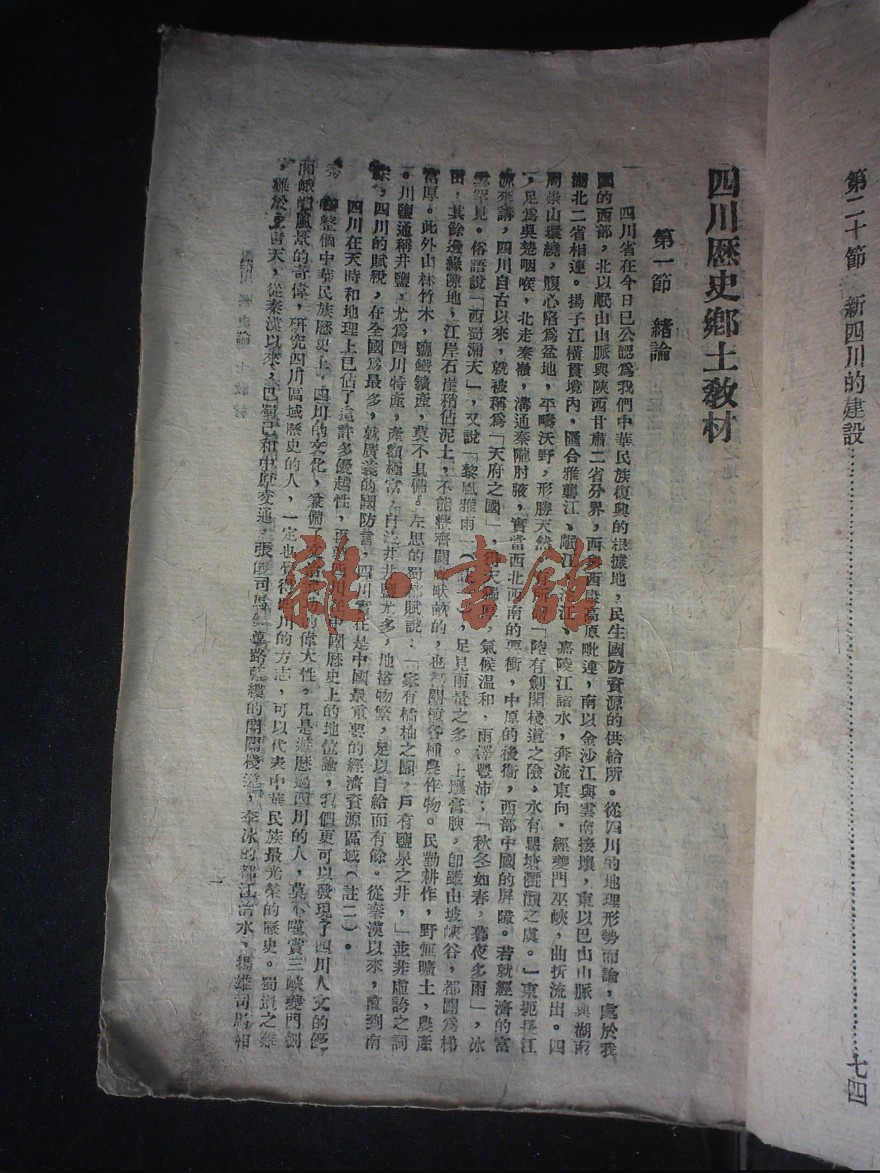 第二十節　新四川的建設……………七四
四川歷史鄉土教材
第一節　緒論
四川省在今日已公認爲我們中華民族復興的根據地，民生國防資源的供給所。從四川的地理形勢而論，處於我
國的西部，北以岷山山脈與陝西甘肅二省分界，西與西康高原毗連，南以金沙江與雲南接壤，東以巴山山脈與湖南
湖北二省相連。揚子江橫貫境內，匯合雅礱江、岷江、沱江、嘉陵江諸水，奔流東向，經夔門巫峽，曲折流出。四
周崇山環繞，腹心陷爲盆地，平疇沃野，形勝天然，「陸有劍閣棧道之險，水有瞿塘灩澦之虞。」東扼長江
，足爲吳楚咽喉，北走秦嶺，溝通秦隴肘腋，實當西北西南的要衝，中原的後衛，西部中國的屏障。若就經濟的富
源來講，四川自古以來，就被稱爲「天府之國」，氣候溫和，雨澤豐沛；「秋冬如春，暮夜多雨」，冰
雪罕見。俗語說「西蜀漏天」，又說「黎風雅雨」，足見雨量之多。土壤膏腴，卽雖山坡峽谷，都闢爲梯
田，其餘邊緣隙地，江岸石崖稍佔泥土，不能整齊開畎畝的，也都闢植各種農作物。民勤耕作，野無曠土，農產
富厚。此外山林竹木，鹽鐵礦產，莫不具備。左思的蜀都賦說：「家有橘柚之園，戶有鹽泉之井，」並非虛誇之詞
。川鹽通稱井鹽，尤爲四川特產，產額極富，自流井井鹽尤多，地裕物繁，足以自給而有餘。從秦漢以來，直到南
宋，四川的賦稅，在全國爲最多，就廣義的國防言，四川實在是中國最重要的經濟資源區域（註二）。
四川在天時和地理上已佔了這許多優越性，再就四川在中國歷史上的地位論，我們更可以發現了四川人文的優
秀。整個中華民族歷史上，四川的文化，兼備了的偉大性。凡是遊歷過四川的人，莫不嘆賞三峽夔門劍
閣峨的風景的奇偉，研究四川區域歷史的人，一定也覺得四川的方志，可以代表中華民族最光榮的歷史。蜀道之難
，難於上青天，從秦漢以來，巴蜀已和中原交通，張儀司馬錯蓽路藍縷的開闢棧道，李冰的都江治水，揚雄司馬相
一
雜·書館